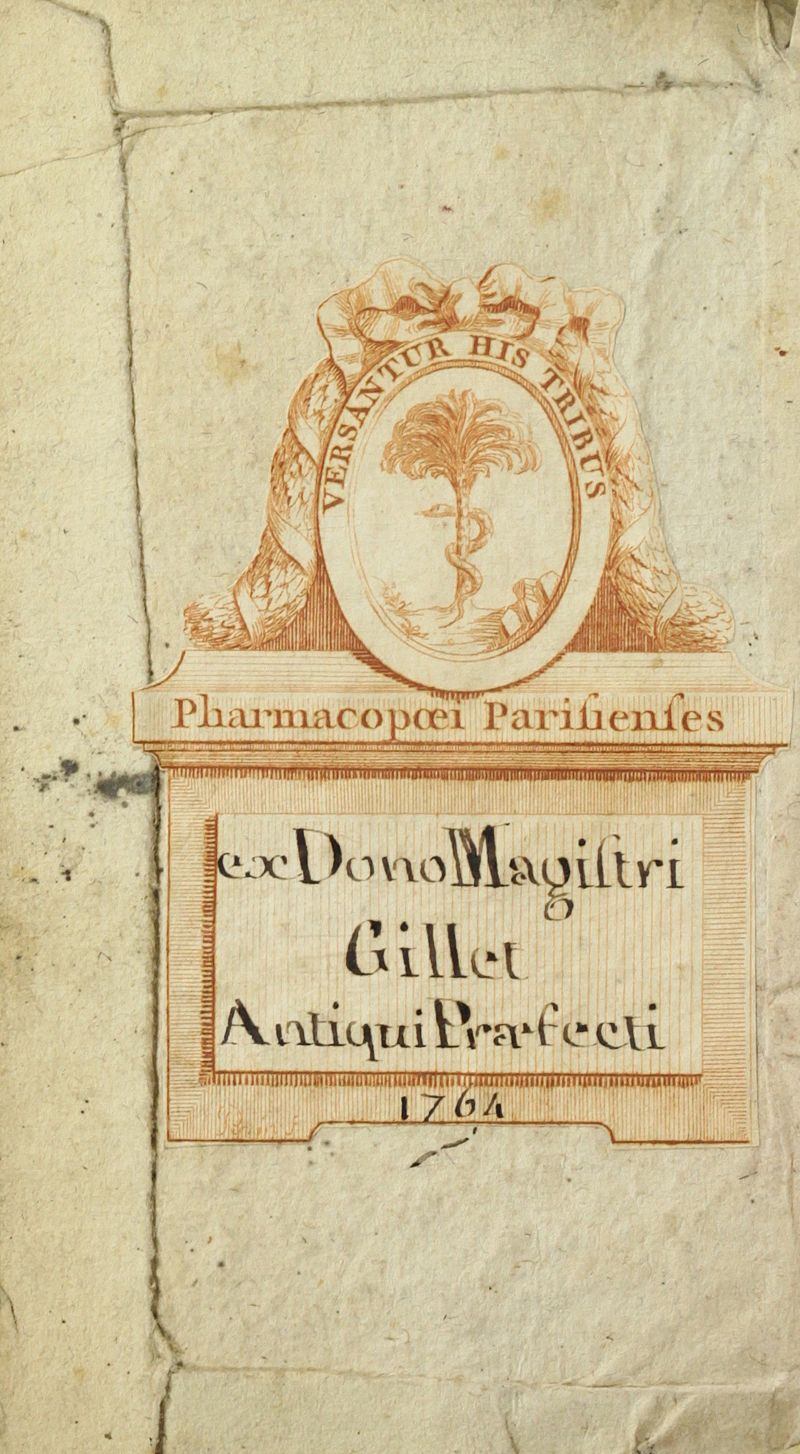 VERSANTUR HIS TRIBUS
Pharmacopœi Pariſienſes
ex Dono Magiſtri
Gillet
Antiqui Præfecti
1764